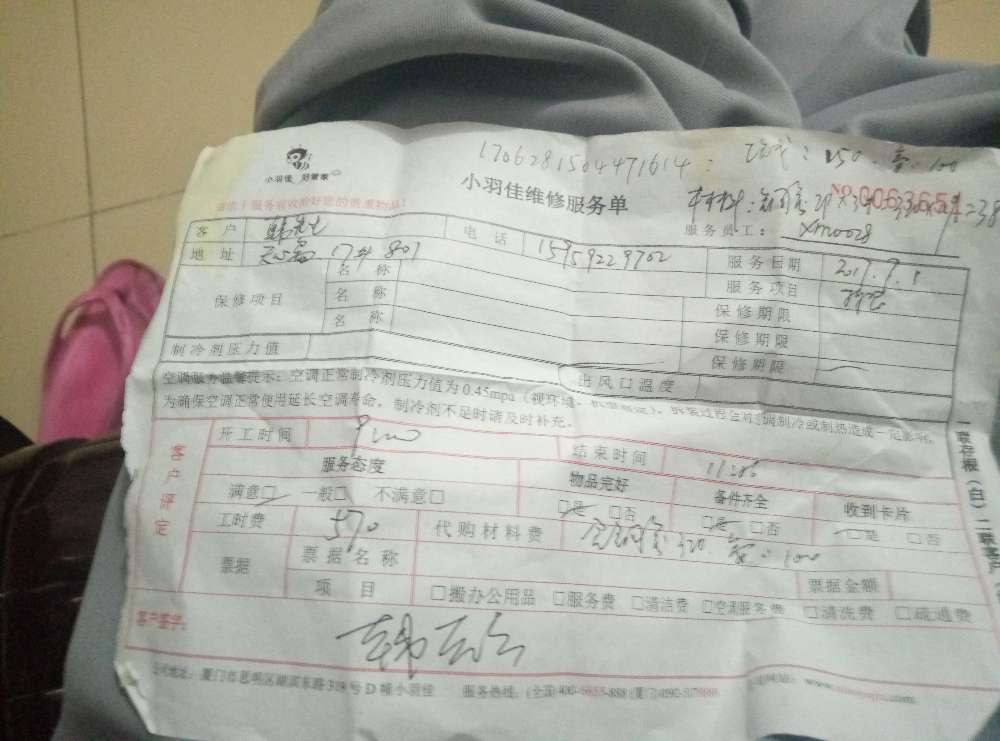 小羽佳 好管家
1706281504471614:
150
100
小羽佳维修服务单
NO 0063651
服务员工: xm0028
客户 韩先生 电话 15959229702 服务日期 2017.7.1
地址 17# 801 服务项目
保修项目 名称 保修期限
名称 保修期限
名称 保修期限
制冷剂压力值 出风口温度
空调服务温馨提示:空调正常制冷剂压力值为0.45mpa(视环境、机型而定),拆装过程会对空调制冷或制热造成一定影响,
为确保空调正常使用延长空调寿命,制冷剂不足时请及时补充。
客户评定
开工时间 9:00 结束时间
服务态度 物品完好 备件齐全 收到卡片
满意□ 一般□ 不满意□ □是 □否 □是 □否 □是 □否
工时费 570 代购材料费 320 100
票据 票据名称 票据金额
项目 □搬办公用品 □服务费 □清洁费 □空调服务费 □清洗费 □疏通费
客户签字:
公司地址:厦门市思明区湖滨东路319号D幢小羽佳 服务热线:(全国)400-6655-888
一联存根(白)二联客户